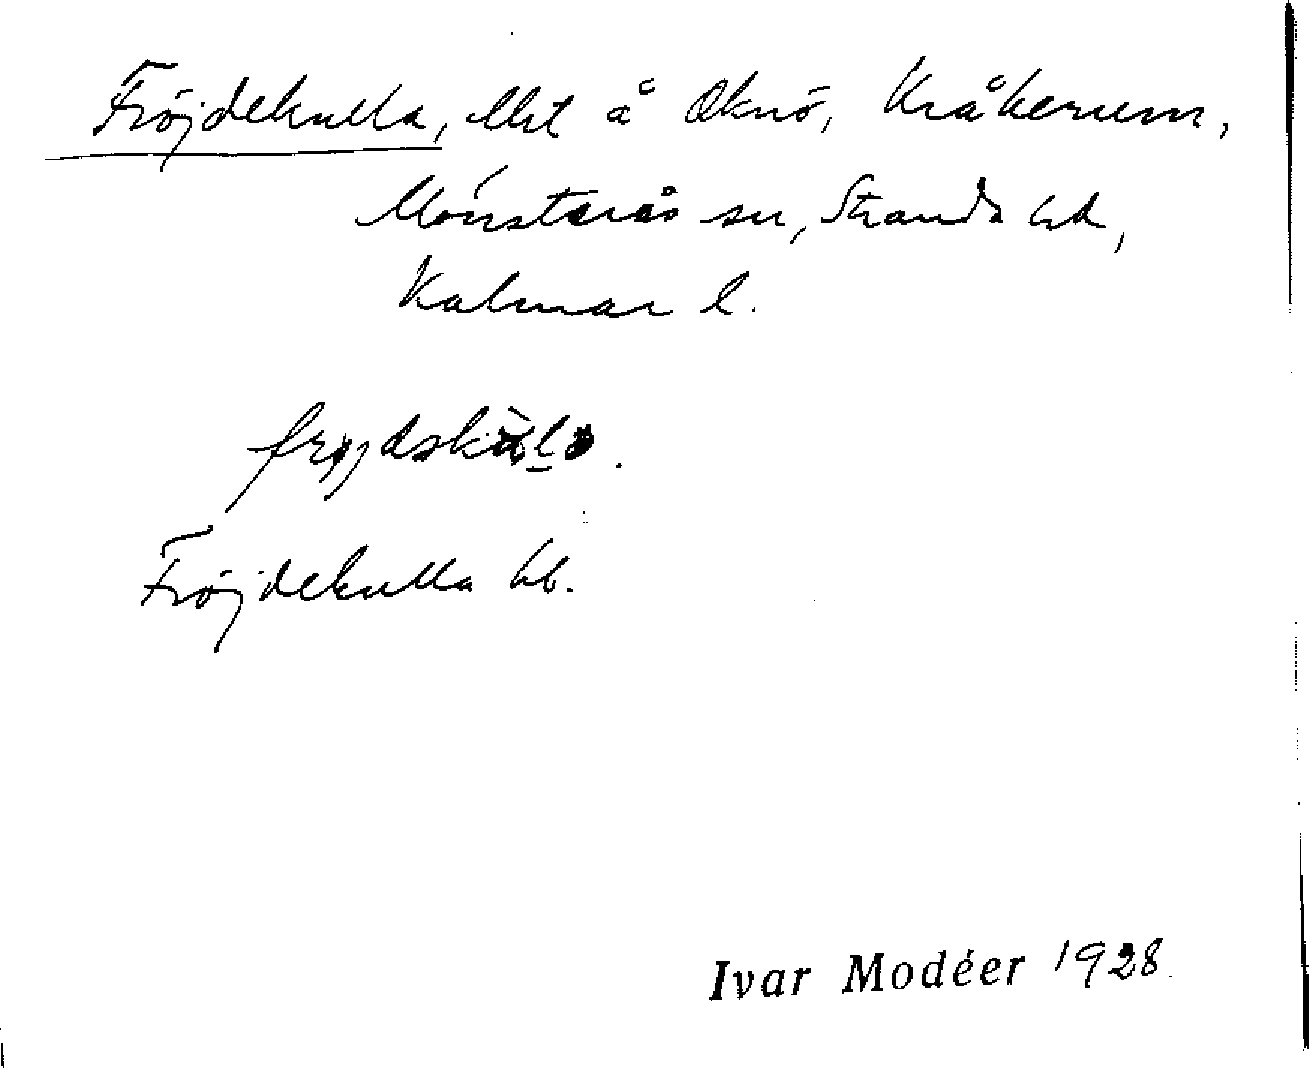 Fröjdekulla, lht å Oknö, Kråkerum,
Mönsterås sn, Stranda hd,
Kalmar l.
Fröjdekulla hb.
Ivar Modéer 1928